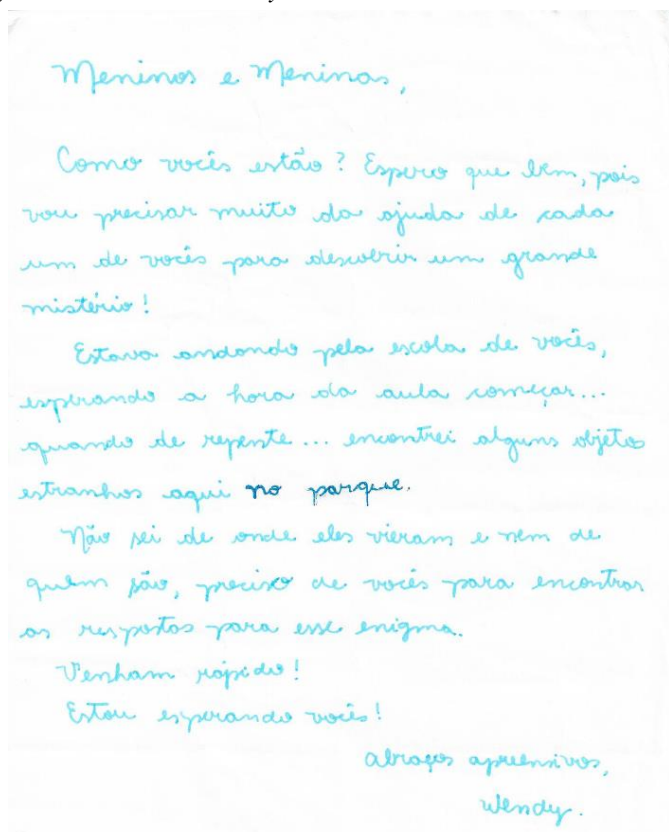 Meninos e Meninas,
Como vocês estão? Espero que bem, pois
vou precisar muito da ajuda de cada
um de vocês para descobrir um grande
mistério!
Estava andando pela escola de vocês,
esperando a hora da aula começar...
quando de repente... encontrei alguns objetos
estranhos aqui no parque.
Não sei de onde eles vieram e nem de
quem são, preciso de vocês para encontrar
as respostas para esse enigma.
Venham rápido!
Estou esperando vocês!
Abraços apreensivos,
Wendy.